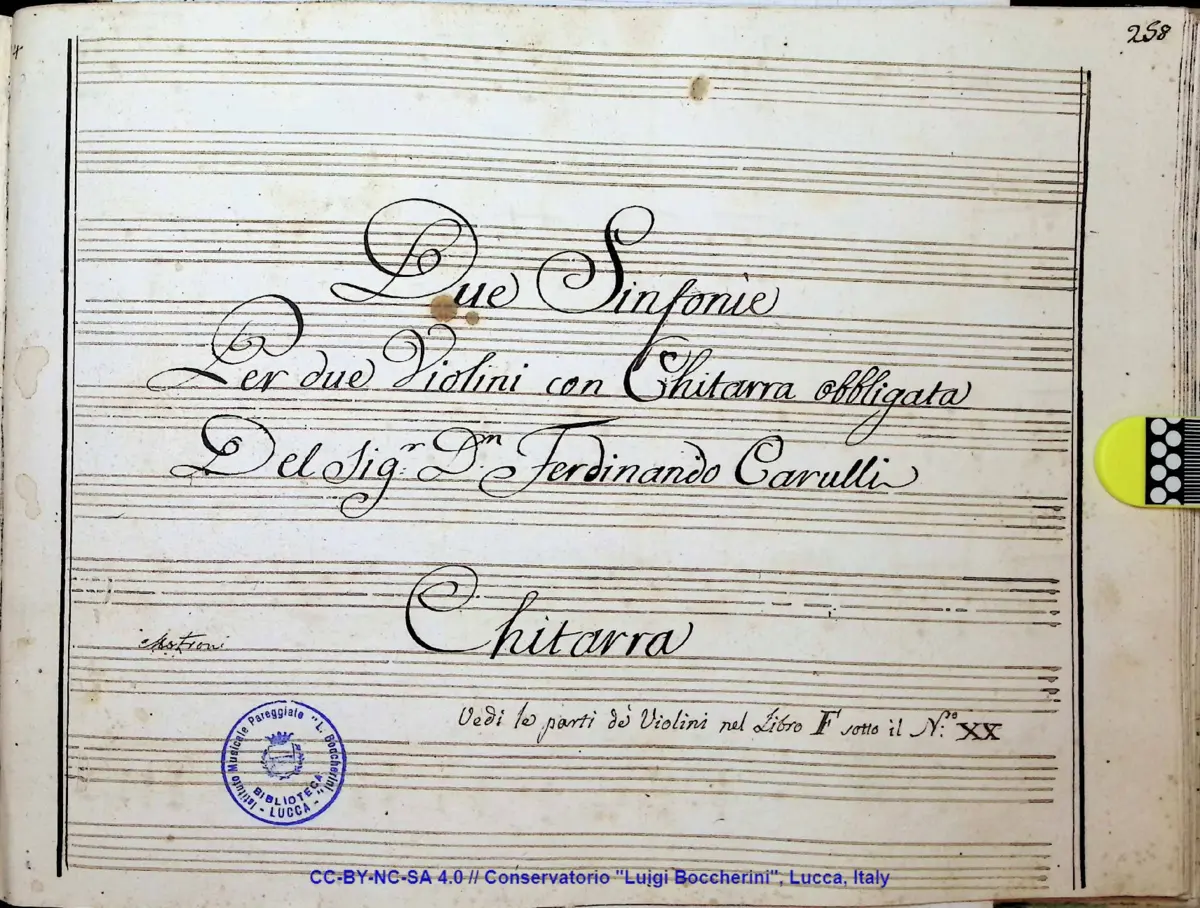 258
Due Sinfonie
Per due Violini con Chitarra obbligata
Del Sig.r D.n Ferdinando Carulli
Chitarra
Vedi le parti de' Violini nel Libro F sotto il N.ro XX
Istituto Musicale Pareggiato "L. Boccherini"
BIBLIOTECA
- LUCCA -
CC-BY-NC-SA 4.0 // Conservatorio "Luigi Boccherini", Lucca, Italy